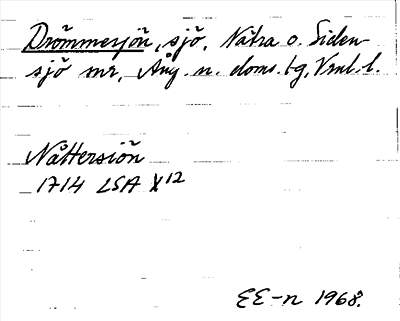 Drömmersjön, sjö, Nätra o. Siden-
sjö snr, Ång. n. doms.tg, Vnl. l.
Nåttersiön
1714 LSA X12
EE-n 1968.